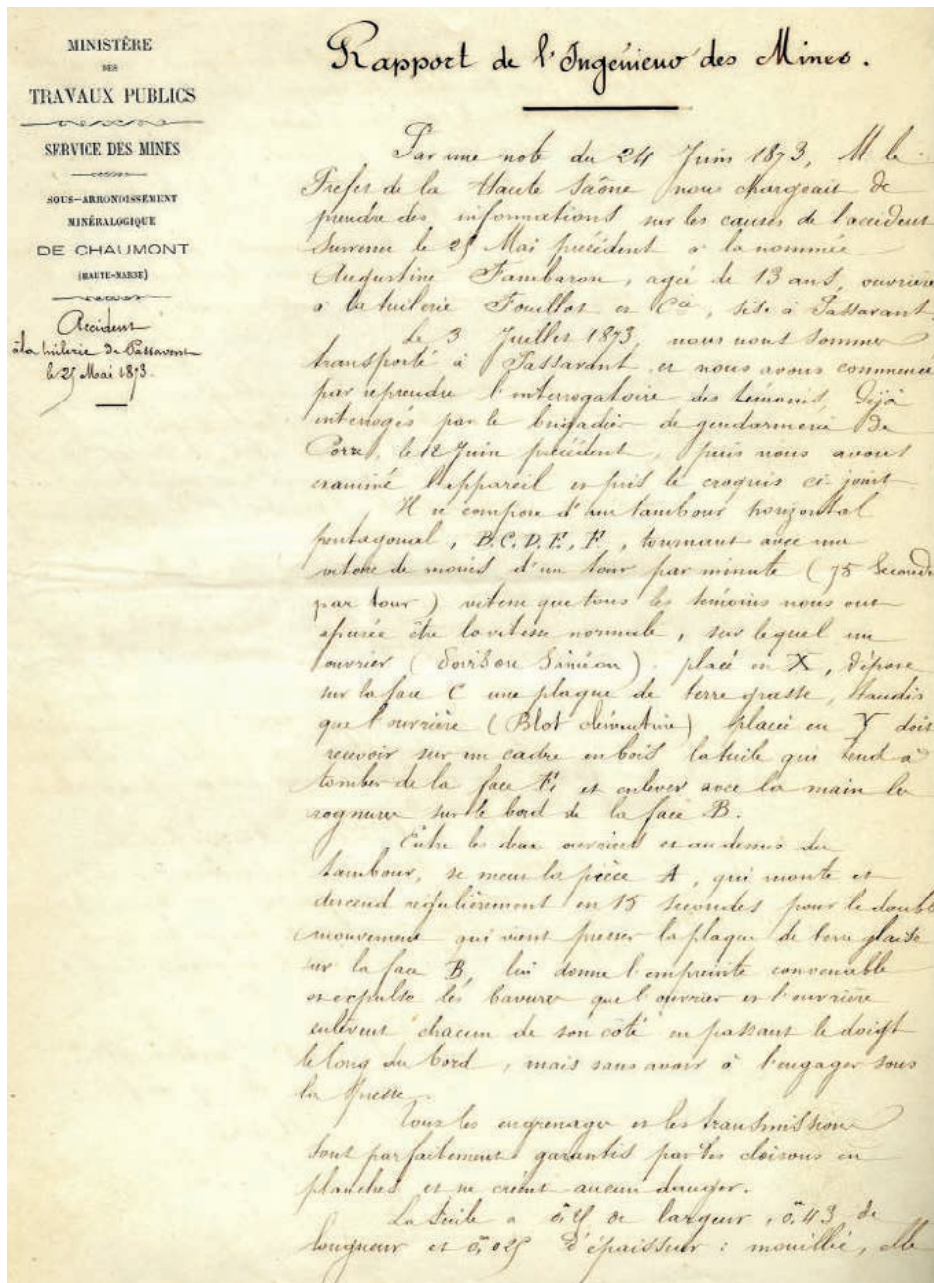 MINISTÈRE
DES
TRAVAUX PUBLICS
SERVICE DES MINES
SOUS-ARRONDISSEMENT
MINÉRALOGIQUE
DE CHAUMONT
(HAUTE-MARNE)
Accident
à la tuilerie de Passavant
le 25 Mai 1873.
Rapport de l'Ingénieur des Mines.
Par une note du 24 Juin 1873, M. le
Préfet de la Haute Saône nous chargeait de
prendre des informations sur les causes de l'accident
survenu le 25 Mai précédent à la nommée
Augustine Tambaron, agée de 13 ans, ouvrière
à la tuilerie Fouillot et Cie, sise à Passavant.
Le 3 Juillet 1873, nous nous sommes
transporté à Passavant et nous avons commencé
par reprendre l'interrogatoire des témoins, déjà
interrogés par le brigadier de gendarmerie de
Corre, le 12 Juin précédent, puis nous avons
examiné l'appareil et pris le croquis ci-joint
Il se compose d'un tambour horizontal
pentagonal, B.C.D.E.F, tournant avec une
vitesse de moins d'un tour par minute (75 Secondes
par tour) vitesse que tous les témoins nous ont
être la vitesse normale, sur lequel un
ouvrier (Siméon) placé en X, dépose
sur la face C une plaque de terre grasse, tandis
que l'ouvrière (Blot Clémentine) placée en Y doit
recevoir sur un cadre en bois la tuile qui tend à
tomber de la face F, et enlever avec la main les
rognures sur le bord de la face B.
Entre les deux ouvriers et au dessus du
tambour, se meut la pièce A, qui monte et
descend régulièrement en 15 secondes pour le double
mouvement qui vient presser la plaque de terre glaise
sur la face B, lui donne l'empreinte convenable
et expulse les bavures que l'ouvrier et l'ouvrière
enlèvent chacun de son côté en passant le doigt
le long du bord, mais sans avoir à l'engager sous
la presse.
Tous les engrenages et les transmissions
sont parfaitement garantis par des cloisons en
planches et ne créent aucun danger.
La tuile a 0,m25 de largeur, 0,m43 de
longueur et 0,m025 d'épaisseur : mouillée, elle